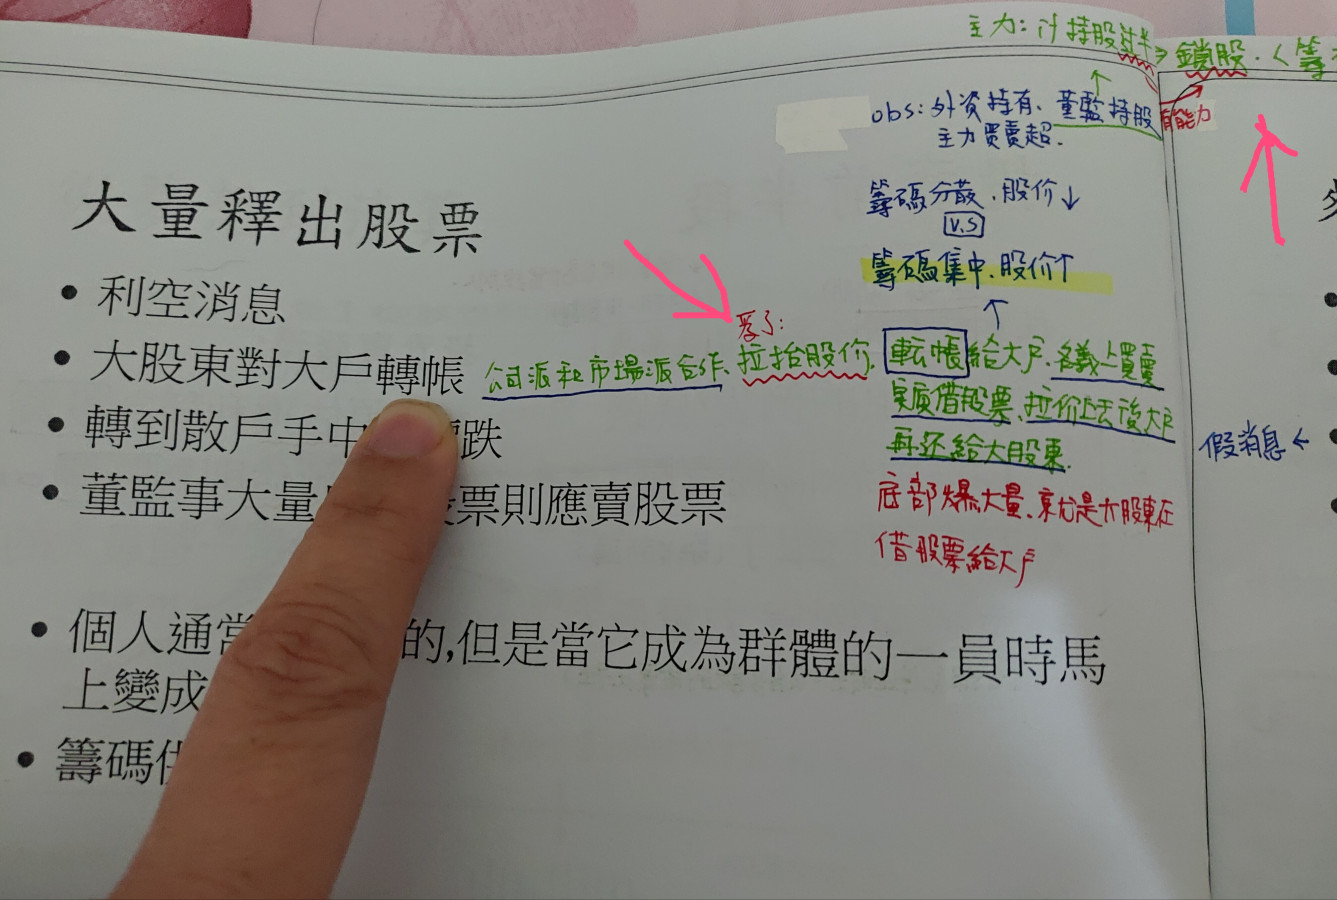 主力:汁持股过半⇒鎖股.<籌
obs:外資持有、董監持股
有能力
主力買賣超.
大量釋出股票
籌碼分散.股价↓
V.S
籌碼集中.股价↑
• 利空消息
為了:
• 大股東對大戶轉帳
公司派和市場派合作、拉抬股价.
転帳給大戶.名義上買賣
實質借股票、拉价上去後大戶
再还給大股東.
• 轉到散戶手中 跌
假消息←
• 董監事大量 票則應賣股票
底部爆大量、就是大股東在
借股票給大戶
• 個人通常 的,但是當它成為群體的一員時馬
上變成
• 籌碼